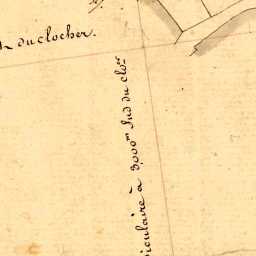 du clocher.
diculaire à 3000.m Sud du clo.er